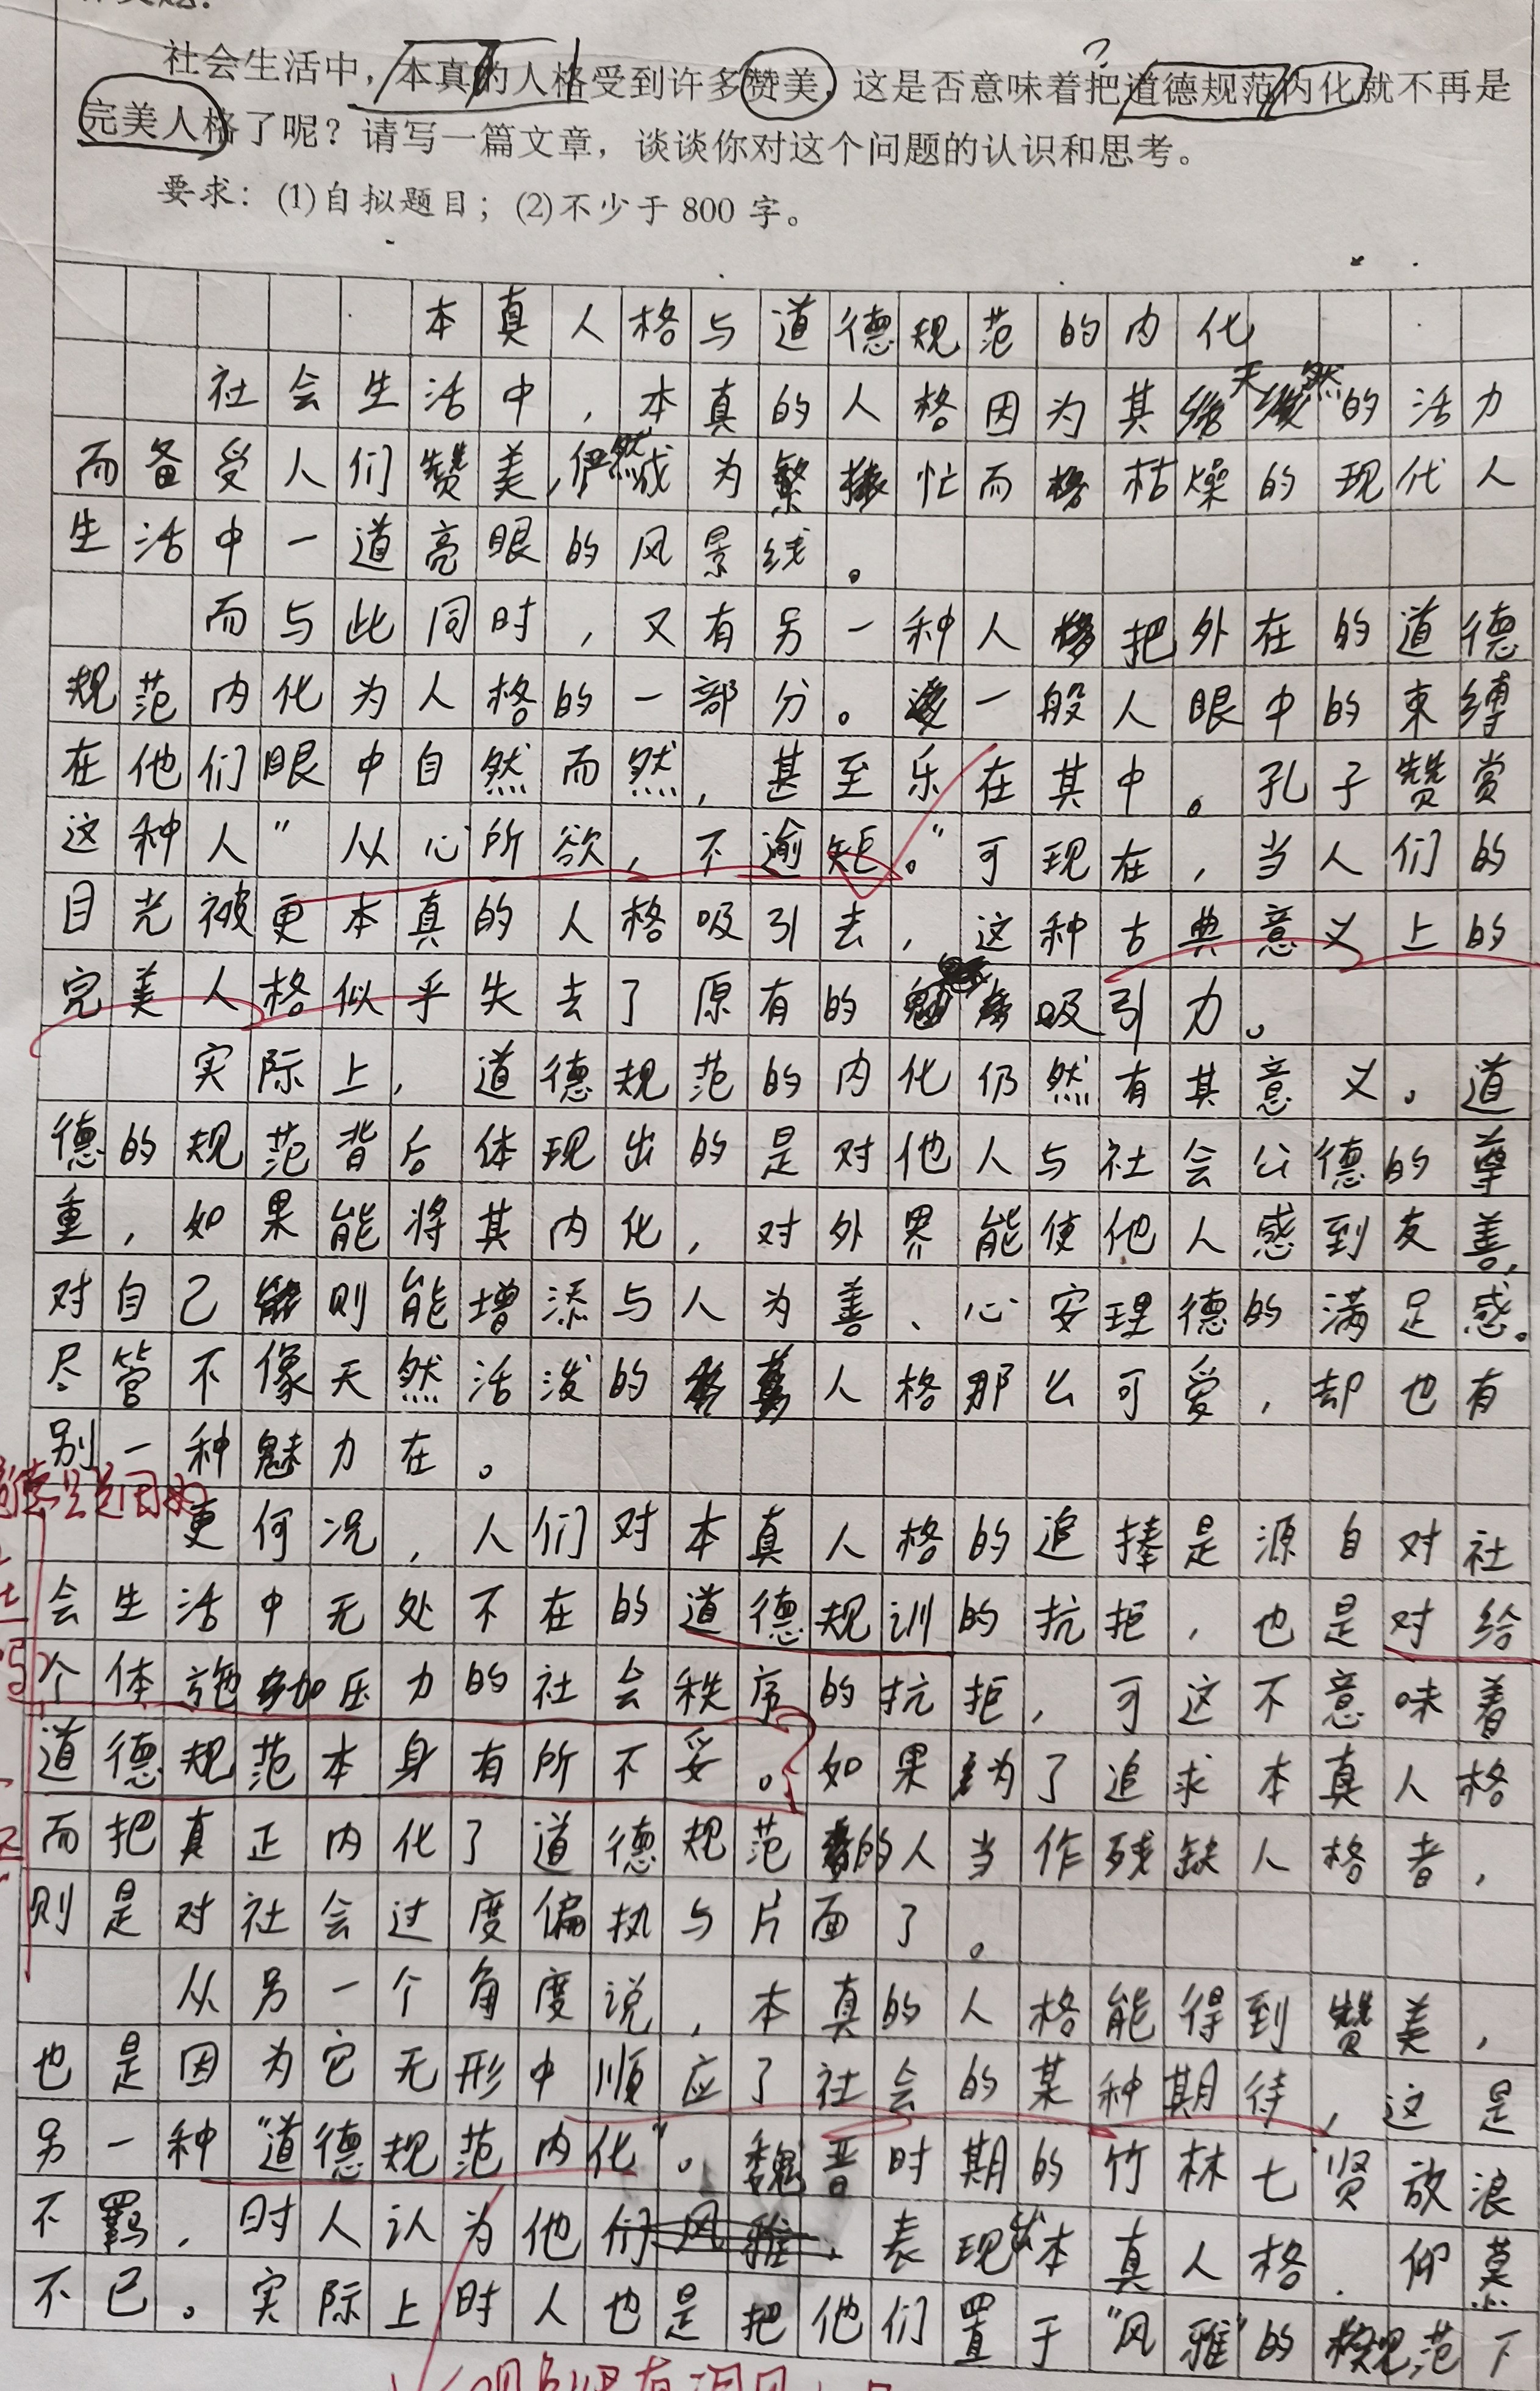 社会生活中，本真的人格受到许多赞美，这是否意味着把道德规范内化就不再是
完美人格了呢？请写一篇文章，谈谈你对这个问题的认识和思考。
要求：(1)自拟题目；(2)不少于 800 字。
本真人格与道德规范的内化
社会生活中，本真的人格因为其天然的活力
而备受人们赞美，俨然成为繁忙而枯燥的现代人
生活中一道亮眼的风景线。
而与此同时，又有另一种人把外在的道德
规范内化为人格的一部分。一般人眼中的束缚
在他们眼中自然而然，甚至乐在其中。孔子赞赏
这种人"从心所欲，不逾矩。"可现在，当人们的
目光被更本真的人格吸引去，这种古典意义上的
完美人格似乎失去了原有的吸引力。
实际上，道德规范的内化仍然有其意义。道
德的规范背后体现出的是对他人与社会公德的尊
重，如果能将其内化，对外界能使他人感到友善，
对自己则能增添与人为善、心安理德的满足感。
尽管不像天然活泼的人格那么可爱，却也有
别一种魅力在。
更何况，人们对本真人格的追捧是源自对社
会生活中无处不在的道德规训的抗拒，也是对给
个体施加压力的社会秩序的抗拒，可这不意味着
道德规范本身有所不妥。如果为了追求本真人格
而把真正内化了道德规范的人当作残缺人格者，
则是对社会过度偏执与片面了。
从另一个角度说，本真的人格能得到赞美，
也是因为它无形中顺应了社会的某种期待，这是
另一种"道德规范内化"。魏晋时期的竹林七贤放浪
不羁，时人认为他们表现出本真人格，仰慕
不已。实际上时人也是把他们置于"风雅"的规范下